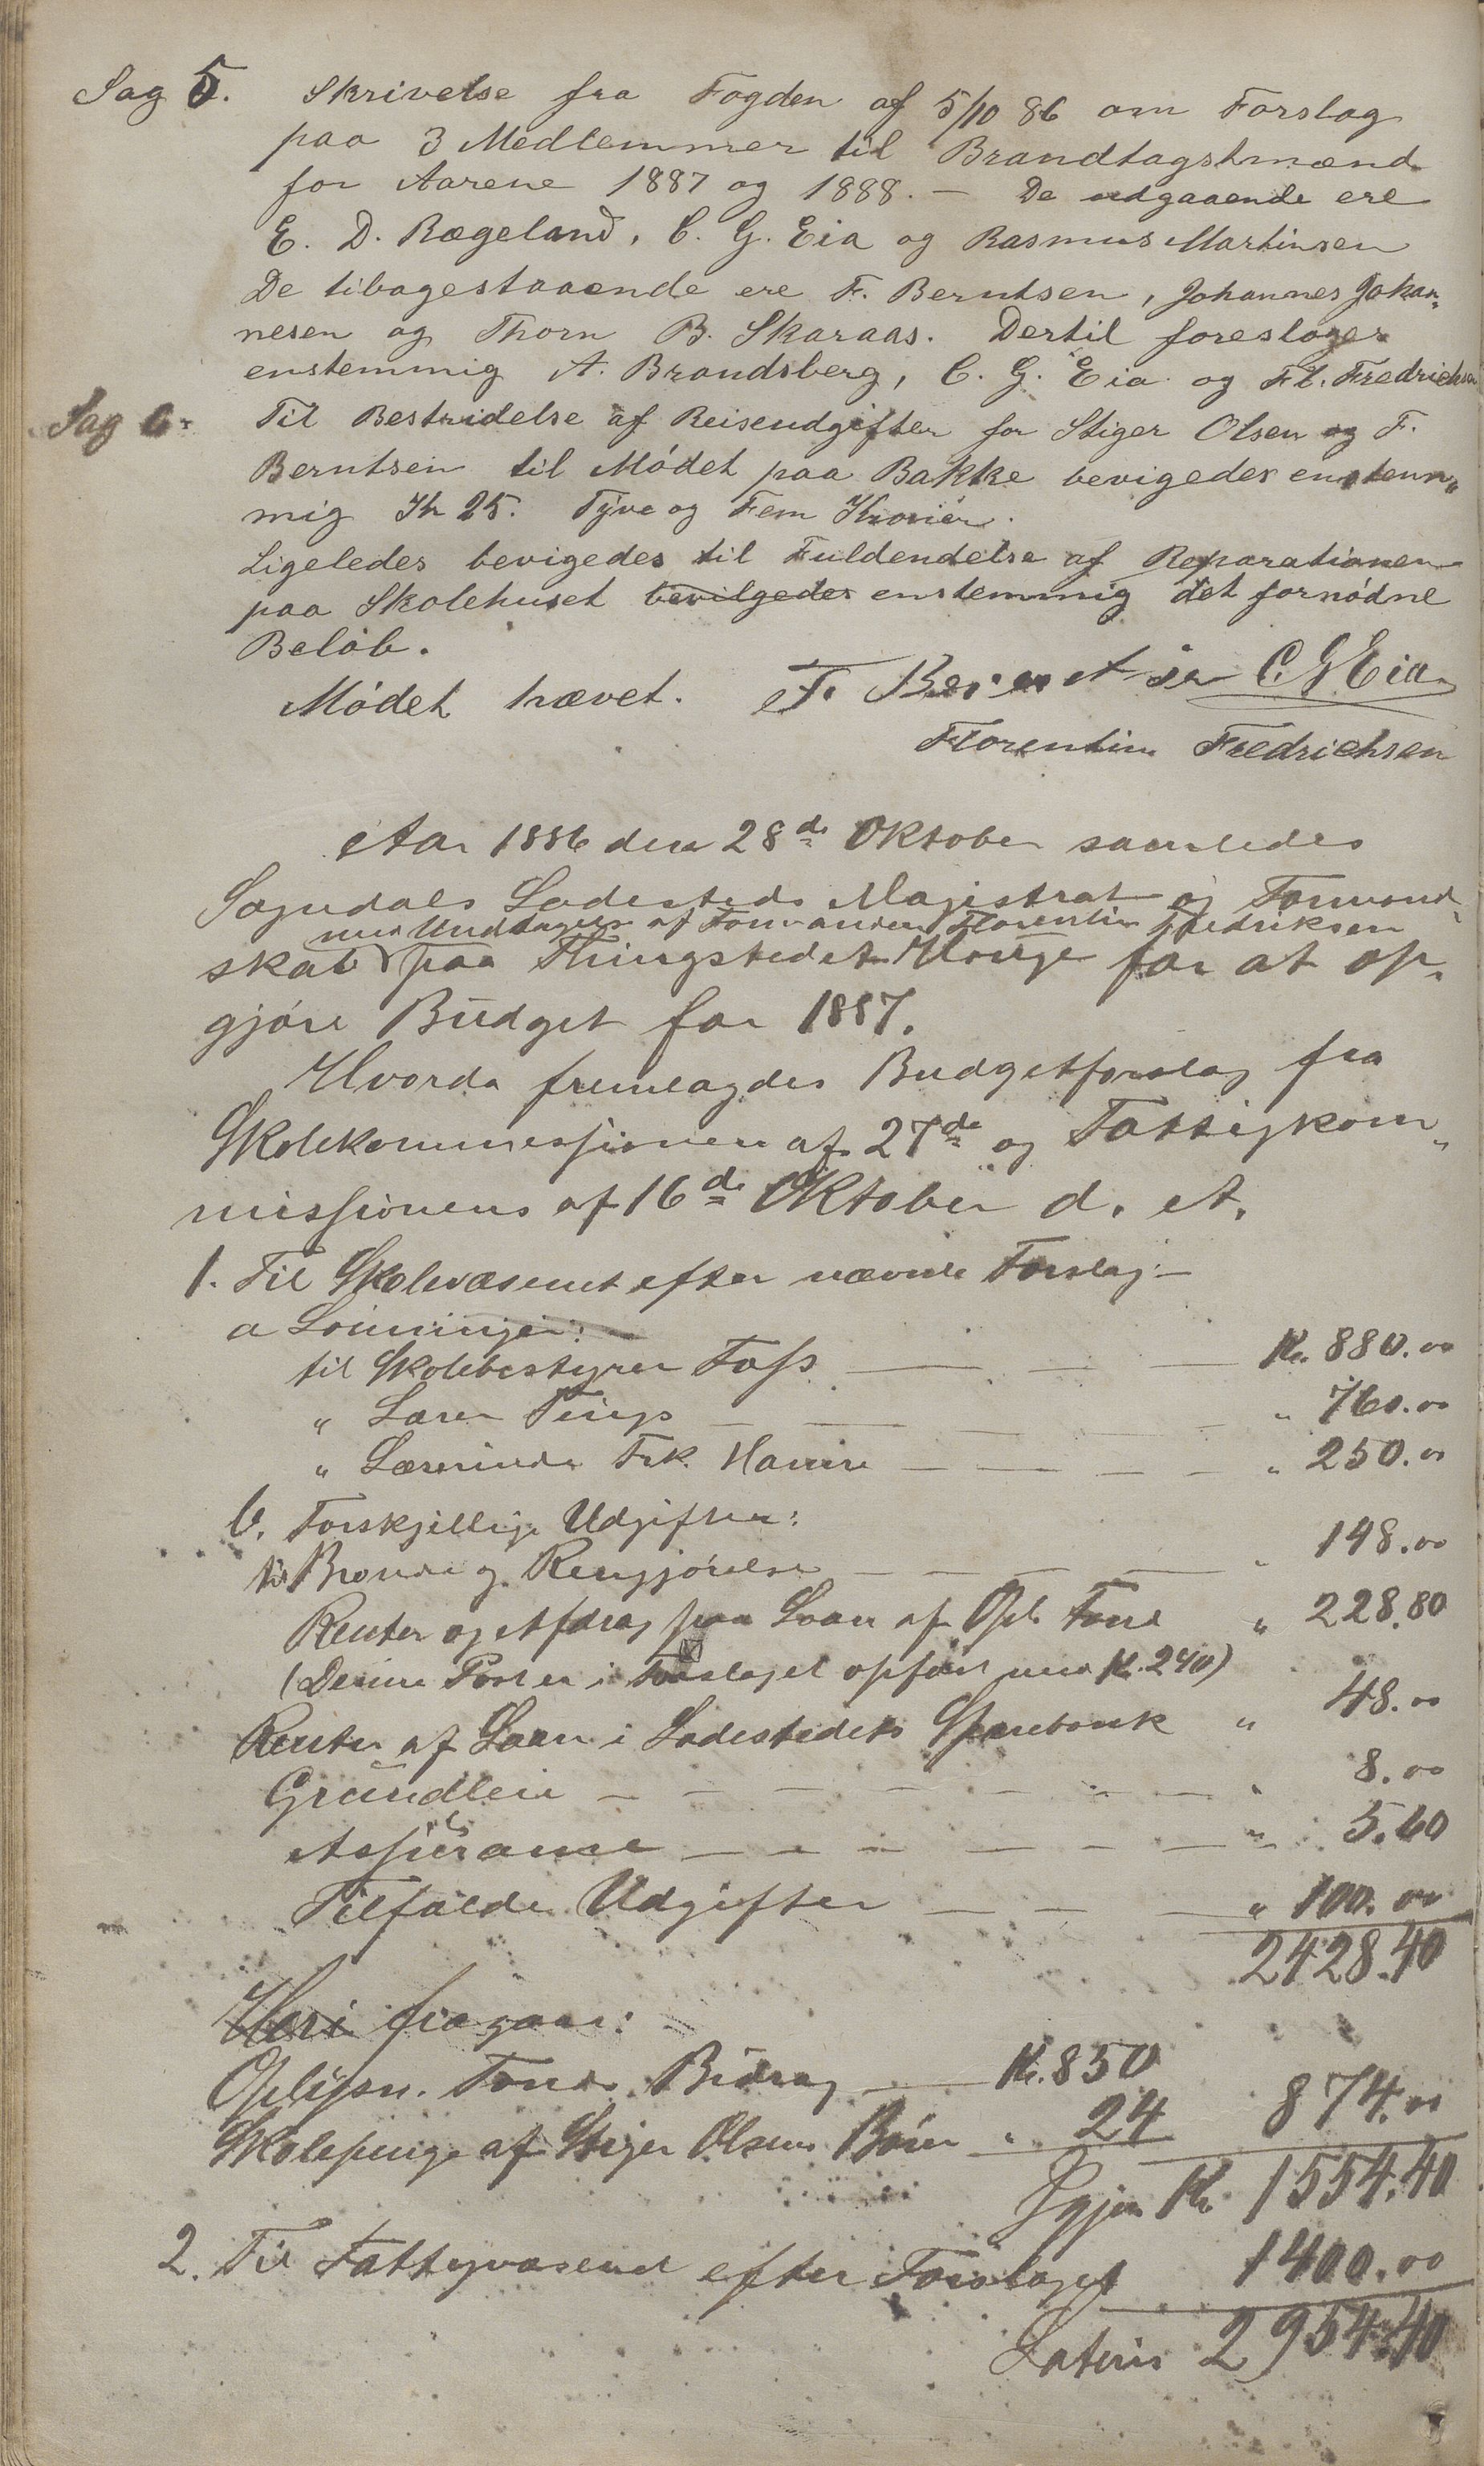 Sag 5. Skrivelse fra Fogden af 5/10 86 om Forslag
paa 3 Medlemmer til Brandtagstmænd
for Aarene 1887 og 1888. — De udgaaende ere
E. D. Rægeland, C. G. Eia og Rasmus Martinsen
De tibagestaaende ere F. Berntsen, Johannes Johan„
nesen og Thorn B. Skaraas. Dertil foresloges
enstemmig A. Brandsberg, C. G. Eia og Fl. Fredrichsen
Sag 6. Til Bestridelse af Reiseudgifter for Stiger Olsen og F.
Berntsen til Mødet paa Bakke bevigedes enstem„
mig Kr 25. Tyve og Fem Kroner.
Ligeledes bevigedes til Fuldendelse af Reparationen
paa Skolehuset bevilgedes enstemmig det fornødne
Beløb.
Mødet hævet. F. Berentsen C. G Eia
Florentin Fredrichsen
Aar 1886 den 28de Oktober samledes
Sogndals Ladesteds Magistrat og Formand„
med Undtagelse af Formanden Florentin Fredriksen
skab paa Thingstedet Hauge for at op„
gjøre Budget for 1887.
Hvorda fremlagdes Budgetforslag fra
Skolekommissionen af 27de og Fattigkom„
missionens af 16de Oktober d. A.
1. Til Skolevæsenet efter nævnte Forslag:—
a Lønninger:
til Skolebestyrer Foss — Kr. 880.00
" Lærer — " 760.00
" Lærerinde Frk. — " 250.00
b. Forskjellige Udgifter:
til Brænde og Rengjørelse — " 148.00
Renter og Afdrag paa Laan af Opl. Fond " 228.80
(Denne Post er i Forslaget opført med Kr. 240)
Renter af Laan i Ladestedets Sparebank " 48.00
Grundleie — " 8.00
Assurance — " 5.60
Tilfældige Udgifter — " 100.00
2428.40
Heri fragaar:
Oplysn. Fonds Bidrag — Kr. 850
Skolepenge af Stiger Olsens Børn " 24 874.00
Igjen Kr. 1554.40
2. Til Fattigvæsenet efter Forslaget 1400.00
Lateris 2954.40